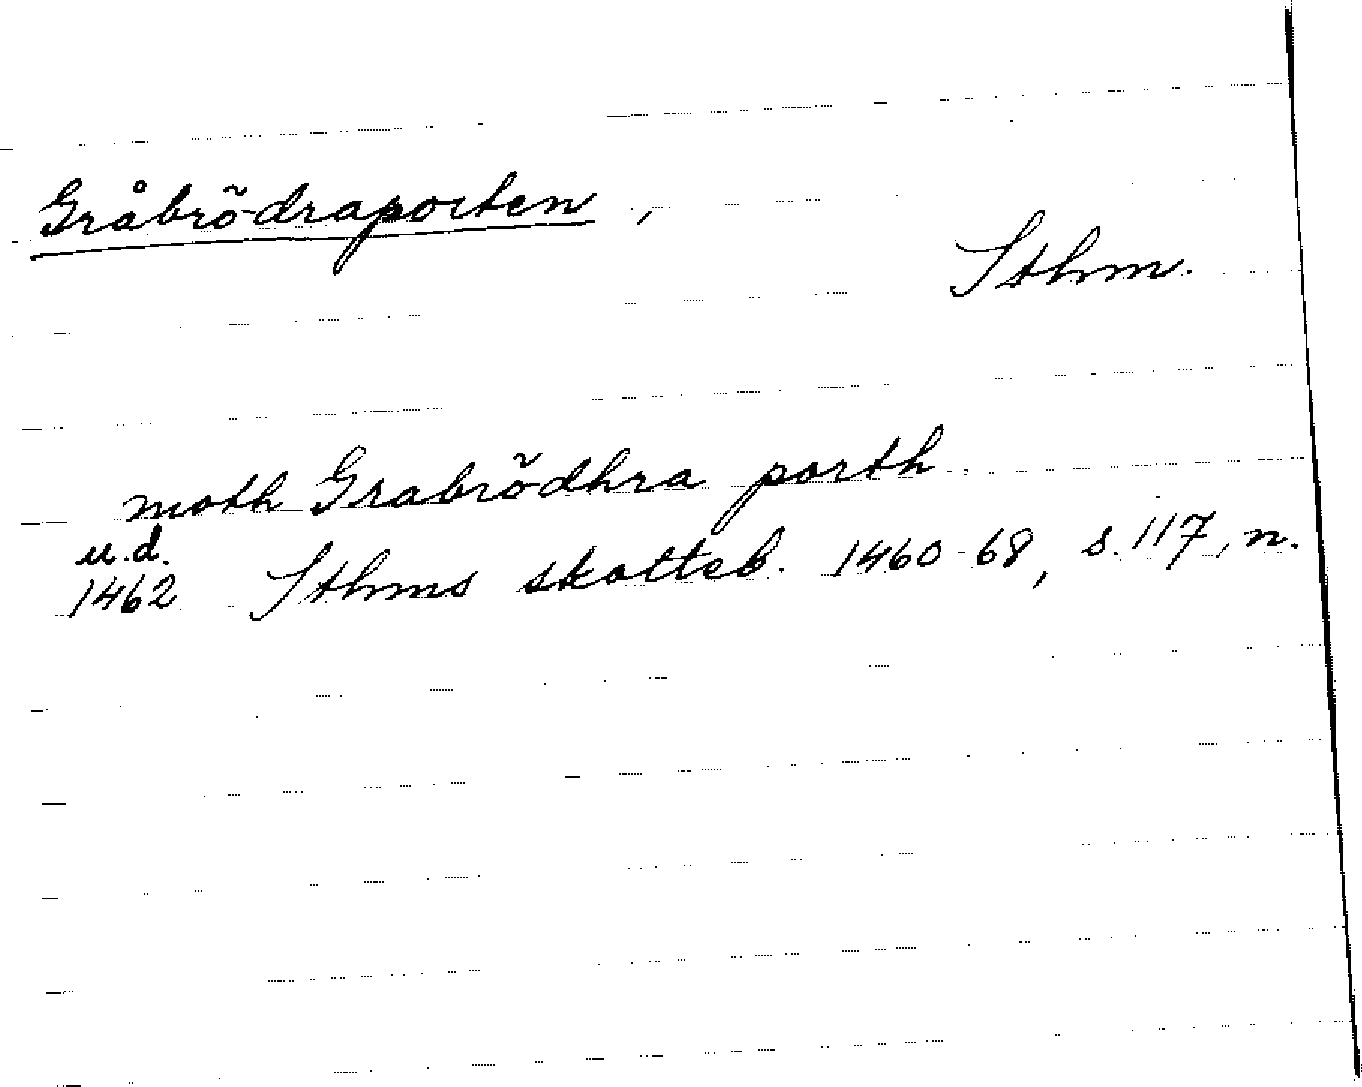 Gråbrödraporten,
Sthm.
moth Grabrödhra porth.
u.d.
1462 Sthms skatteb. 1460-68, s. 117, n.